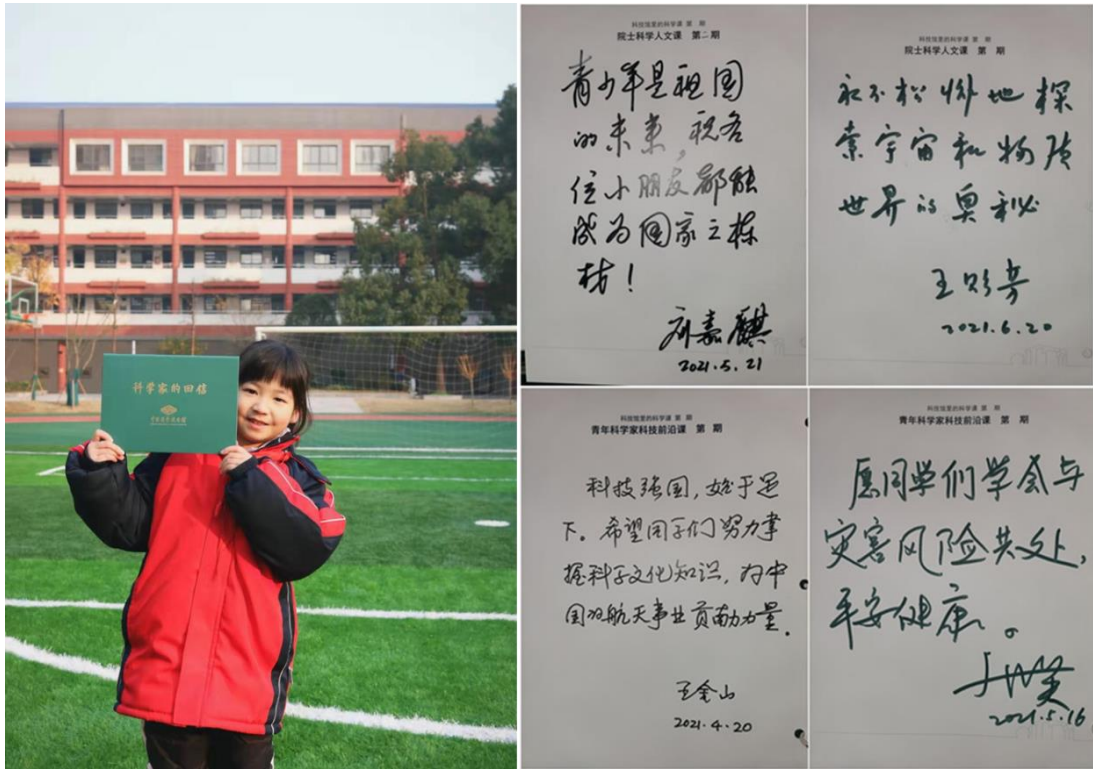 科学家的回信
科技馆里的科学课 第 期
院士科学人文课 第二期
青少年是祖国
的未来,祝各
位小朋友都能
成为国家之栋
材!
刘嘉麒
2021.5.21
科技馆里的科学课 第 期
院士科学人文课 第 期
永不松懈地探
索宇宙和物质
世界的奥秘
王贻芳
2021.6.20
科技馆里的科学课 第 期
青年科学家科技前沿课 第 期
科技强国,始于足
下。希望同学们努力掌
握科学文化知识,为中
国的航天事业贡献力量。
王金山
2021.4.20
科技馆里的科学课 第 期
青年科学家科技前沿课 第 期
愿同学们学会与
灾害风险共处,
平安健康。
2021.5.16